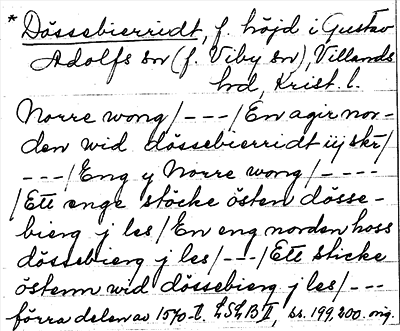 * Dössebierridt, f. höjd i Gustav
Adolfs sn (f. Viby sn), Villands
hd, Krist. l.
Norre wong/---/En agir nor-
den wid dössebierridt iij skr/
---/Eng y Norre wong/----
/Ett enge stöcke östen dösse-
bierg j les/En eng norden hoss
dössebierg j les/---/Ett sticke
östenn wid dössebierg j les/---
förra delen av 1570-t. LSLB II, ss. 199, 200. orig.